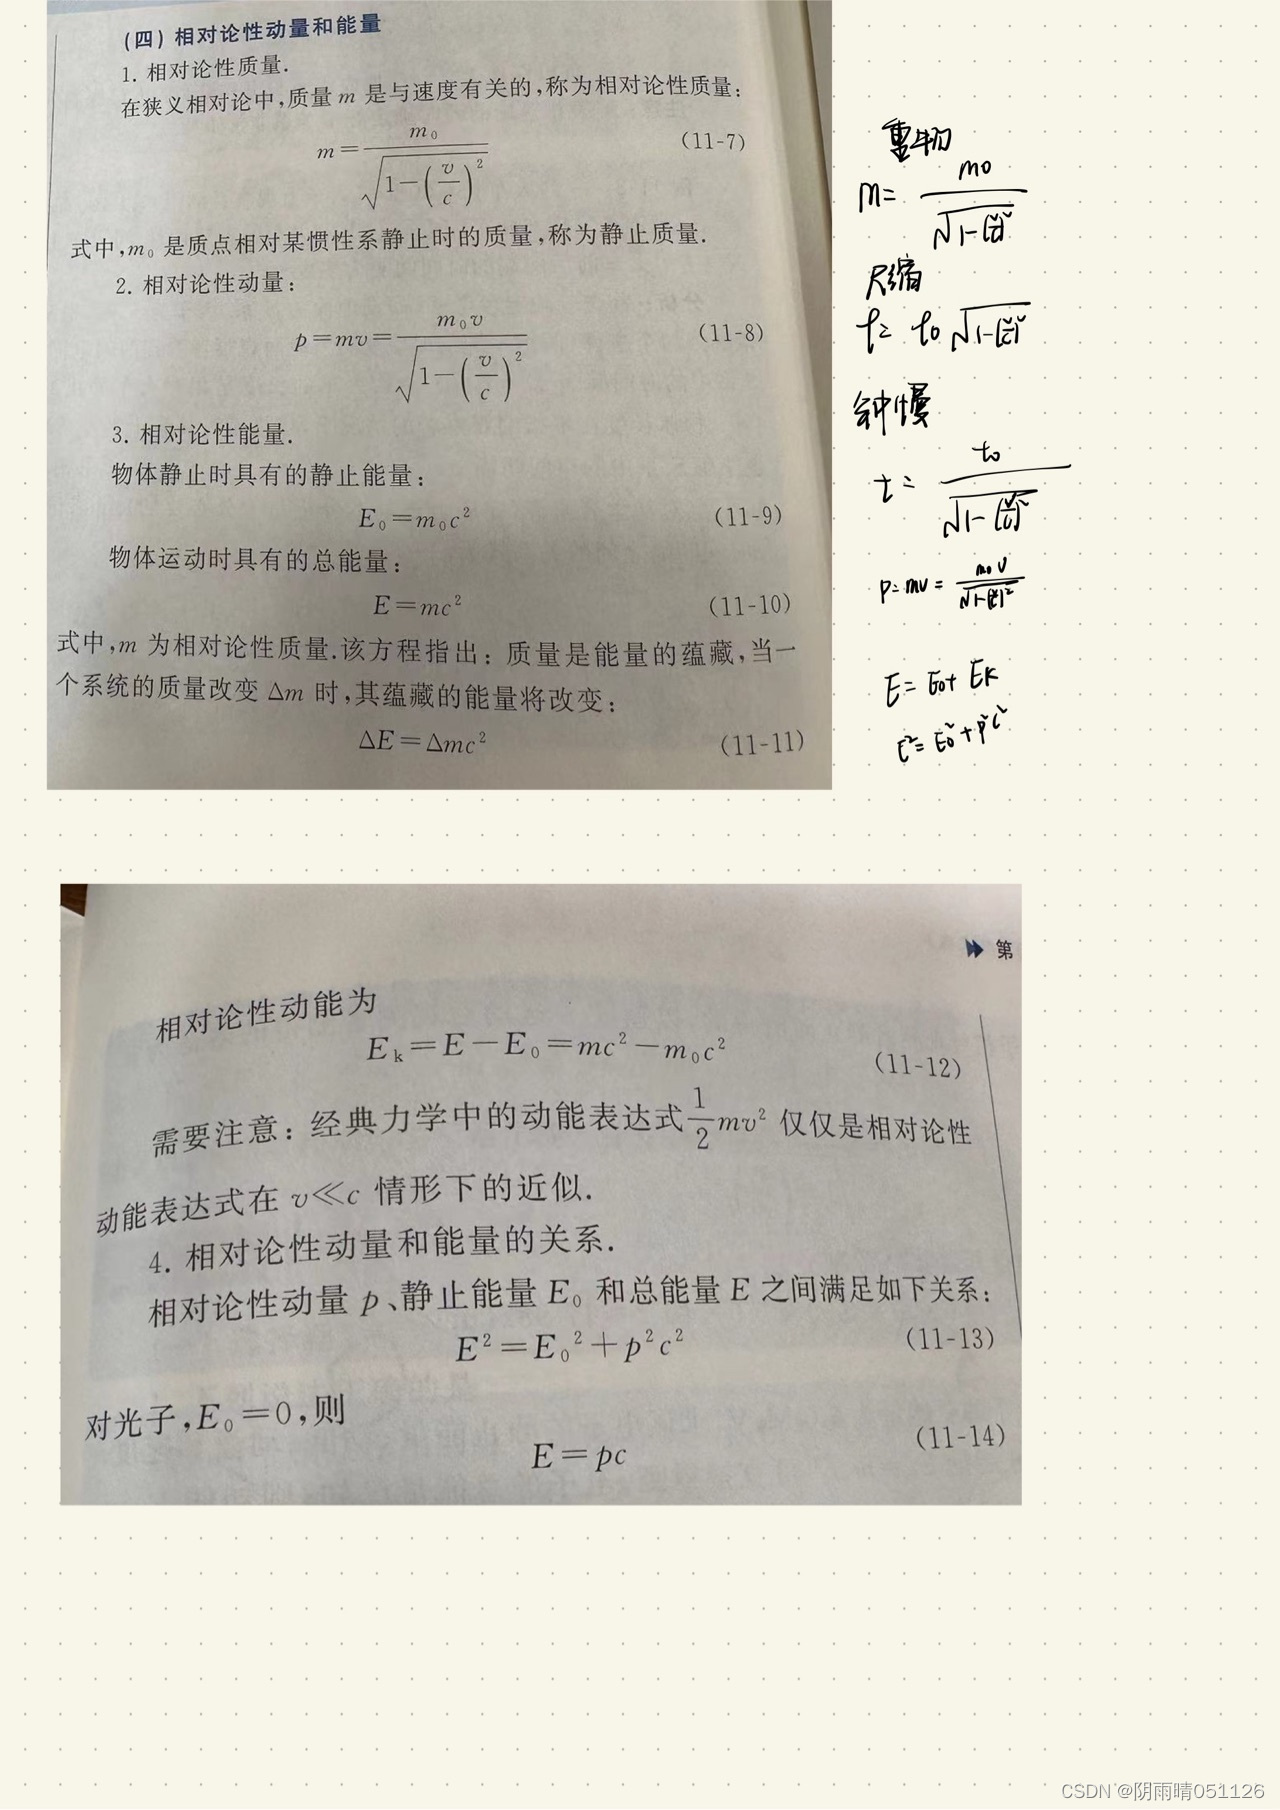 (四) 相对论性动量和能量
1. 相对论性质量.
在狭义相对论中,质量 m 是与速度有关的,称为相对论性质量:
m = m₀ / √(1-(v/c)²) (11-7)
式中,m₀ 是质点相对某惯性系静止时的质量,称为静止质量.
2. 相对论性动量:
p=mv= m₀v / √(1-(v/c)²) (11-8)
3. 相对论性能量.
物体静止时具有的静止能量:
E₀=m₀c² (11-9)
物体运动时具有的总能量:
E=mc² (11-10)
式中,m 为相对论性质量.该方程指出: 质量是能量的蕴藏,当一
个系统的质量改变 Δm 时,其蕴藏的能量将改变:
ΔE=Δmc² (11-11)
m= m0 / √(1-(v/c)²)
尺缩
√(1-(v/c)²)
钟慢
t= t₀ / √(1-(v/c)²)
p=mv= m₀v / √(1-(v/c)²)
E=E₀+Ek
E²=E₀²+p²c²
第
相对论性动能为
Eₖ=E-E₀=mc²-m₀c² (11-12)
需要注意: 经典力学中的动能表达式 1/2 mv² 仅仅是相对论性
动能表达式在 v≪c 情形下的近似.
4. 相对论性动量和能量的关系.
相对论性动量 p、静止能量 E₀ 和总能量 E 之间满足如下关系:
E²=E₀²+p²c² (11-13)
对光子,E₀=0,则
E=pc (11-14)
CSDN @阴雨晴051126